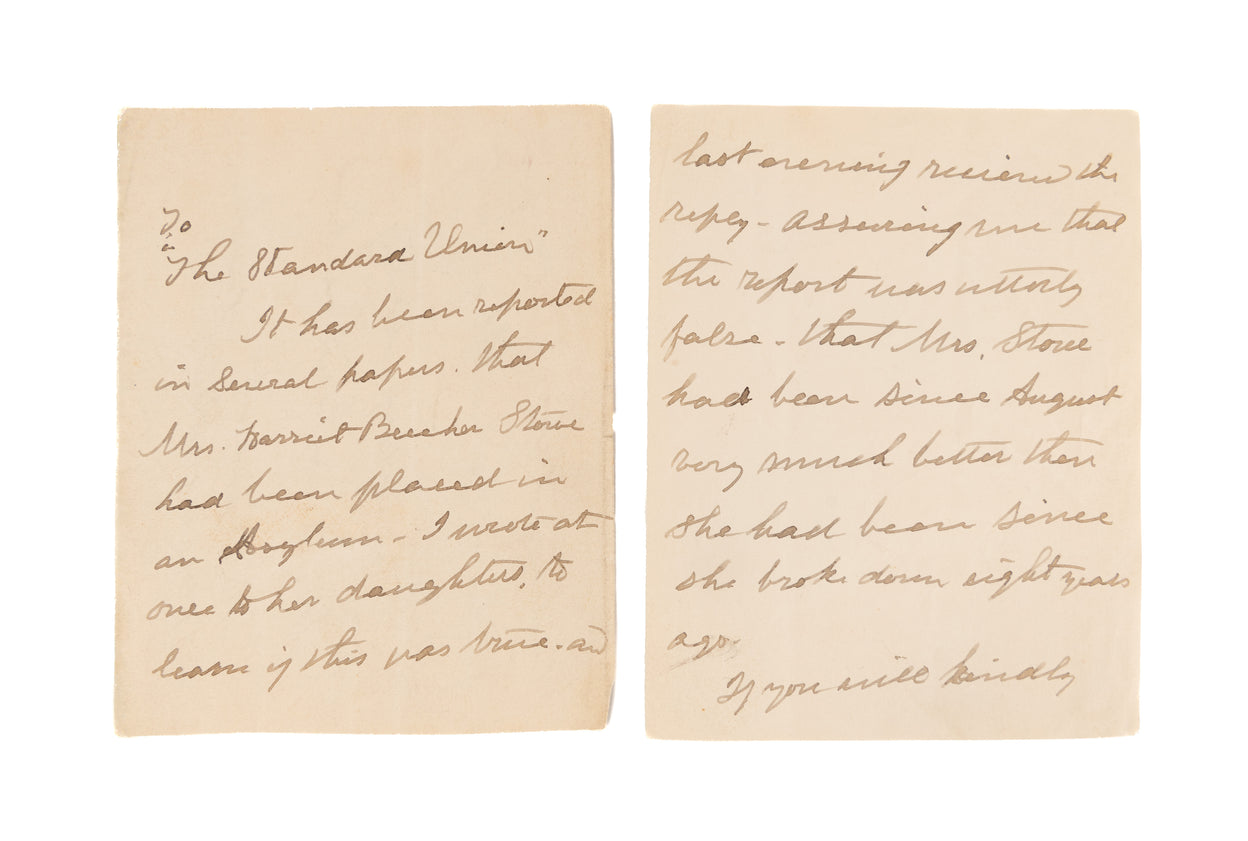 To
"The Standard Union"
It has been reported
in Several papers. that
Mrs. Harriet Beecher Stowe
had been placed in
an Asylum - I wrote at
once to her daughters, to
learn if this was true. and
last evening recieved the
reply - assuring me that
the report was utterly
false - that Mrs. Stowe
had been since August
very much better then
she had been since
she broke down eight years
ago.
If you will kindly